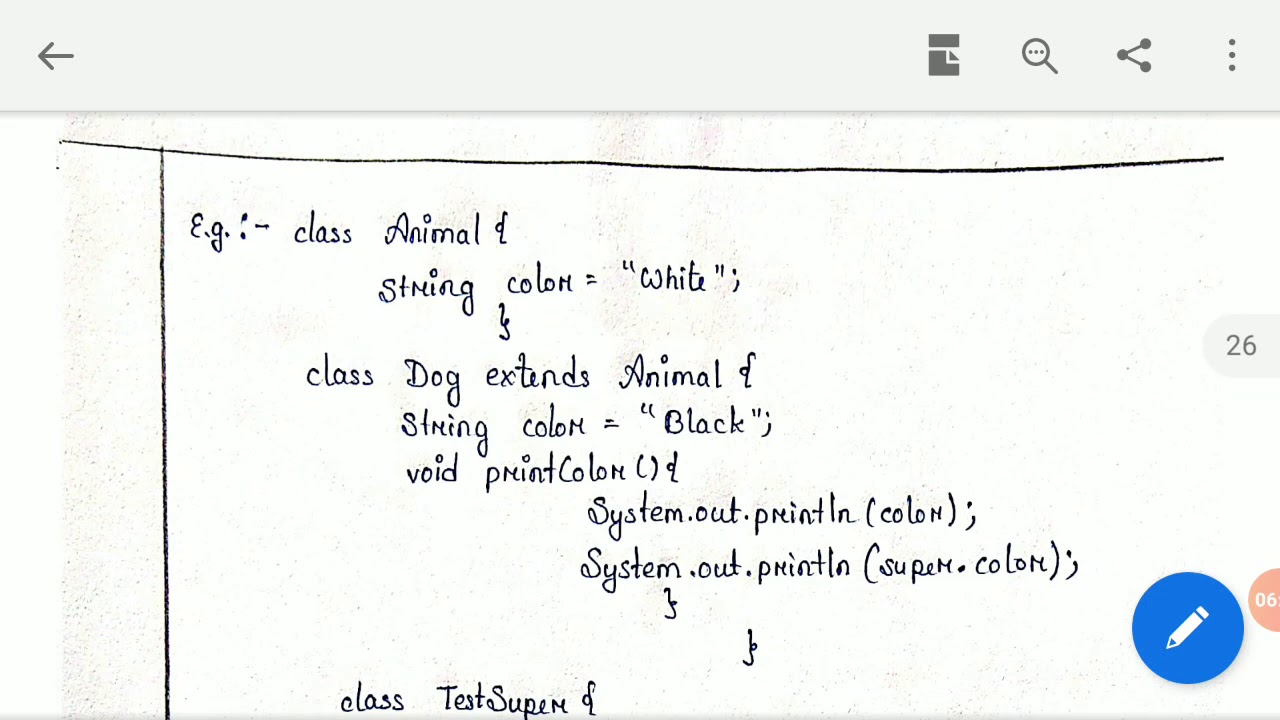 E.g. :- class Animal {
String color = "White";
}
class Dog extends Animal {
String color = "Black";
void printColor () {
System.out.println (color);
System.out.println (super.color);
}
}
class TestSuper {
26
06: